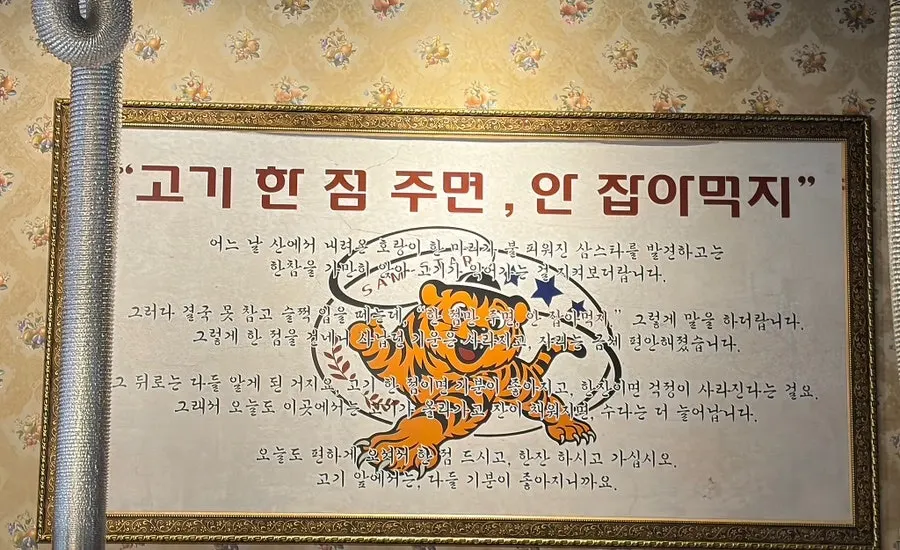 “고기 한 점 주면, 안 잡아먹지”
어느 날 산에서 내려온 호랑이 한 마리가 불 피워진 삼스타를 발견하고는
한참을 가만히 앉아 고기가 익어가는 걸 지켜보더랍니다.
SAM STAR
그러다 결국 못 참고 슬쩍 입을 떼는데 “한 점만 주면, 안 잡아먹지.” 그렇게 말을 하더랍니다.
그렇게 한 점을 건네니 사납던 기운은 사라지고, 자리는 금세 편안해졌습니다.
그 뒤로는 다들 알게 된 거지요. 고기 한 점이면 기분이 좋아지고, 한잔이면 걱정이 사라진다는 걸요.
그래서 오늘도 이곳에서는 가 올라가고 잔이 채워지면, 수다는 더 늘어납니다.
오늘도 편하게 오셔서 한 점 드시고, 한잔 하시고 가십시오.
고기 앞에서는, 다들 기분이 좋아지니까요.